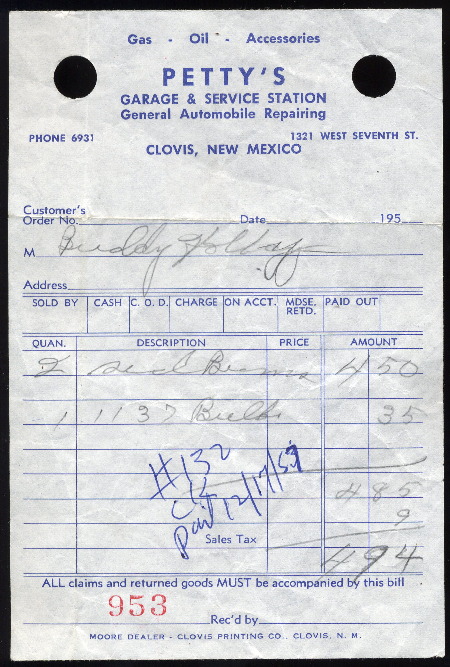 Gas - Oil - Accessories
PETTY'S
GARAGE & SERVICE STATION
General Automobile Repairing
PHONE 6931
1321 WEST SEVENTH ST.
CLOVIS, NEW MEXICO
Customer's
Order No. Date 195
M Buddy Holley
Address
SOLD BY CASH C. O. D. CHARGE ON ACCT. MDSE. RETD. PAID OUT
QUAN. DESCRIPTION PRICE AMOUNT
2 Seal Beams 4 50
1 1137 Bulb 35
#132
ck
Paid 12/17/57
4 85
Sales Tax 9
4 94
ALL claims and returned goods MUST be accompanied by this bill
953
Rec'd by
MOORE DEALER - CLOVIS PRINTING CO., CLOVIS, N. M.